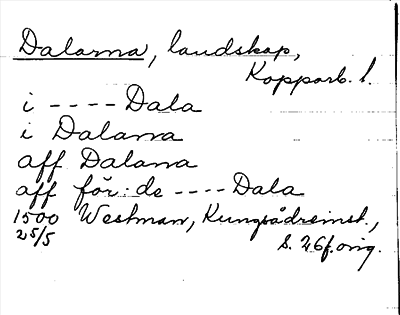 Dalarna, landskap,
Kopparb. l.
i ---- Dala
i Dalarna
aff Dalarna
aff för: de ---- Dala
1500 Westman, Kungsådreinst.,
25/5 S. 26f. orig.